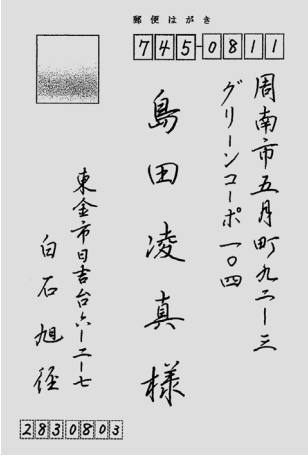 郵便はがき
745-0811
周南市五月町九二ー三
グリーンコーポ一〇四
島田凌真様
東金市日吉台六ー二ー七
白石旭径
2830803